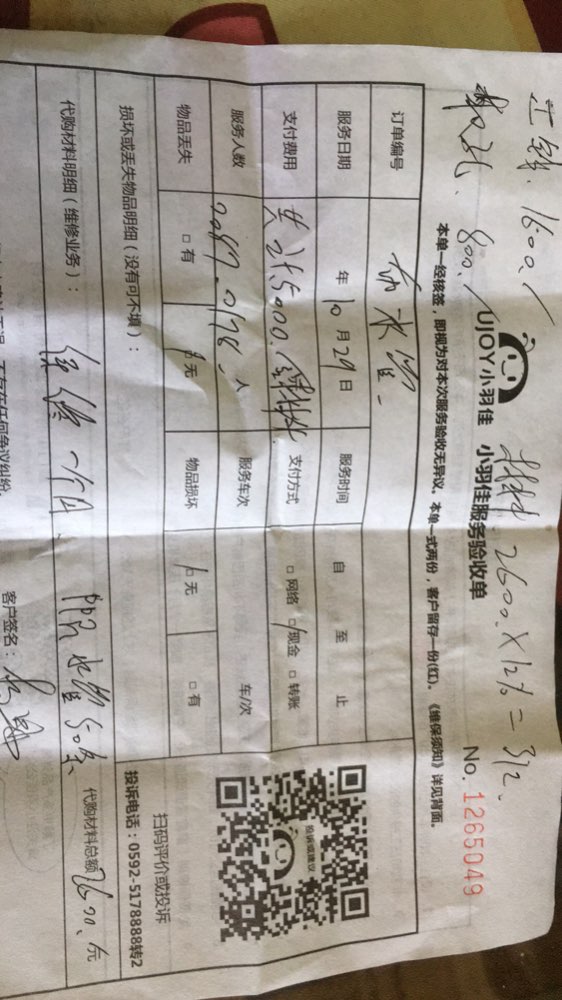 工钱:1600.
800.
材料 2600.×12% = 312.
UJOY小羽佳 小羽佳服务验收单
No. 1265049
本单一经核签,即视为对本次服务验收无异议。本单一式两份,客户留存一份(红)。《维保须知》详见背面。
订单编号
服务日期 年 10 月 29 日 服务时间 自 至 止
支付费用 共计5000. 支付方式 □ 网络 □ 现金 □ 转账
服务人数 人 服务车次 车/次
物品丢失 □ 有 □ 无 物品损坏 □ 无 □ 有
损坏或丢失物品明细(没有可不填):
投诉或建议
扫码评价或投诉
投诉电话:0592-5178888转2
代购材料明细(维修业务): PPR 水管 50条 代购材料总额 2600. 元
不存在任何争议纠纷
客户签名: